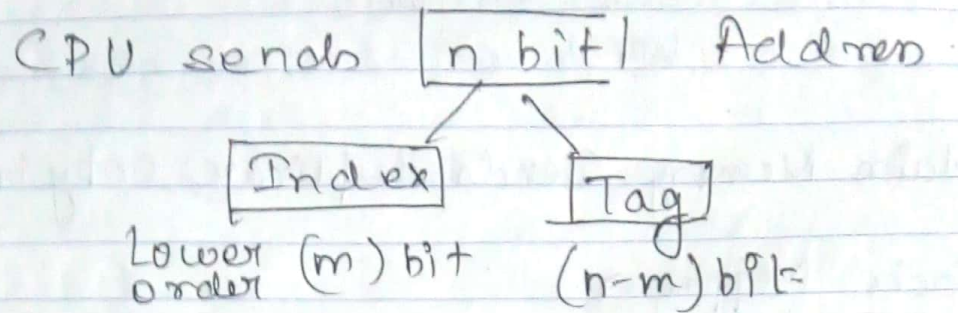 CPU sends n bit Address
Index Tag
Lower order (m) bit (n-m) bit